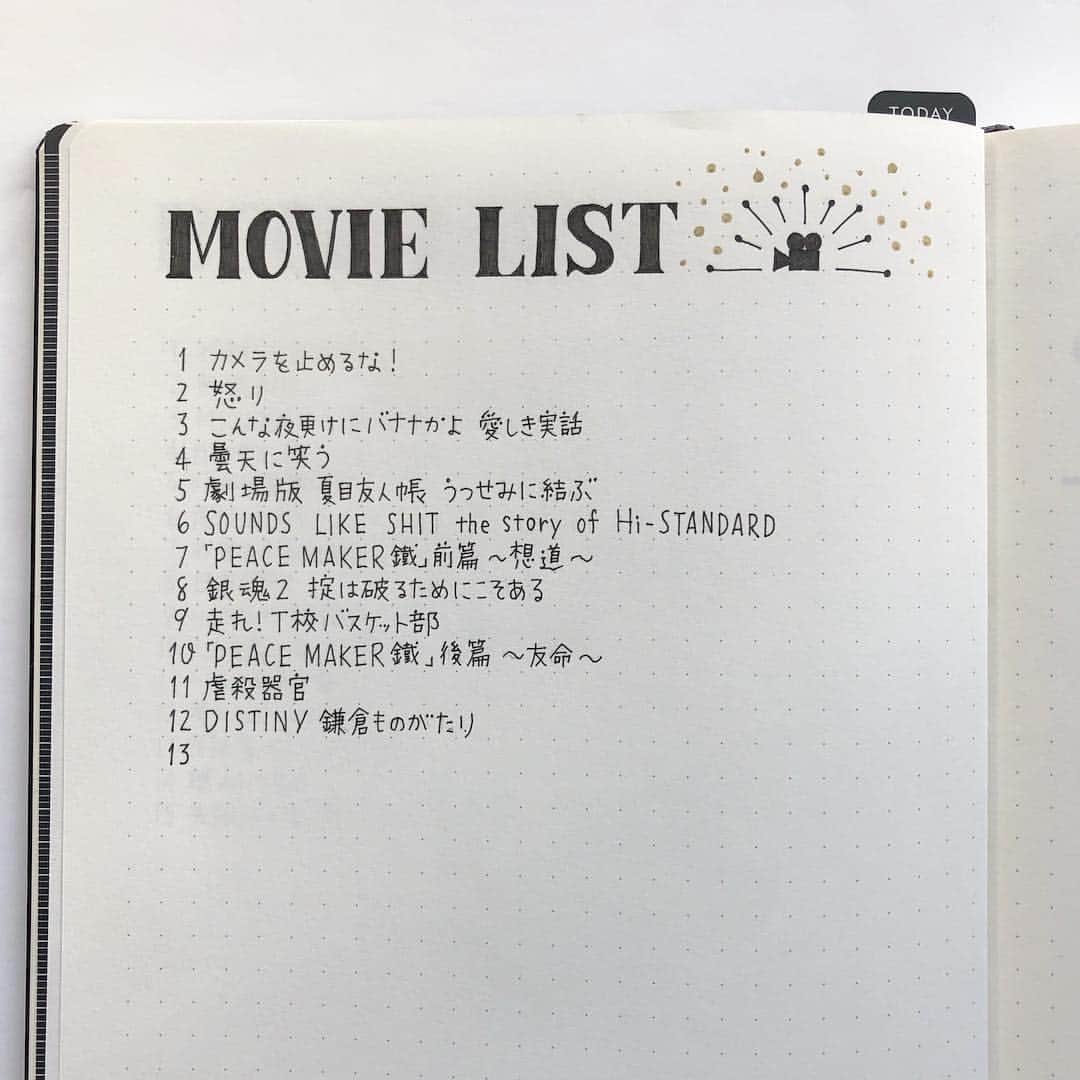 TODAY
MOVIE LIST
1 カメラを止めるな!
2 怒り
3 こんな夜更けにバナナかよ 愛しき実話
4 曇天に笑う
5 劇場版 夏目友人帳 うつせみに結ぶ
6 SOUNDS LIKE SHIT the story of Hi-STANDARD
7 「PEACE MAKER 鐵」前篇 ～想道～
8 銀魂2 掟は破るためにこそある
9 走れ!T校バスケット部
10 「PEACE MAKER 鐵」後篇 ～友命～
11 虐殺器官
12 DISTINY 鎌倉ものがたり
13